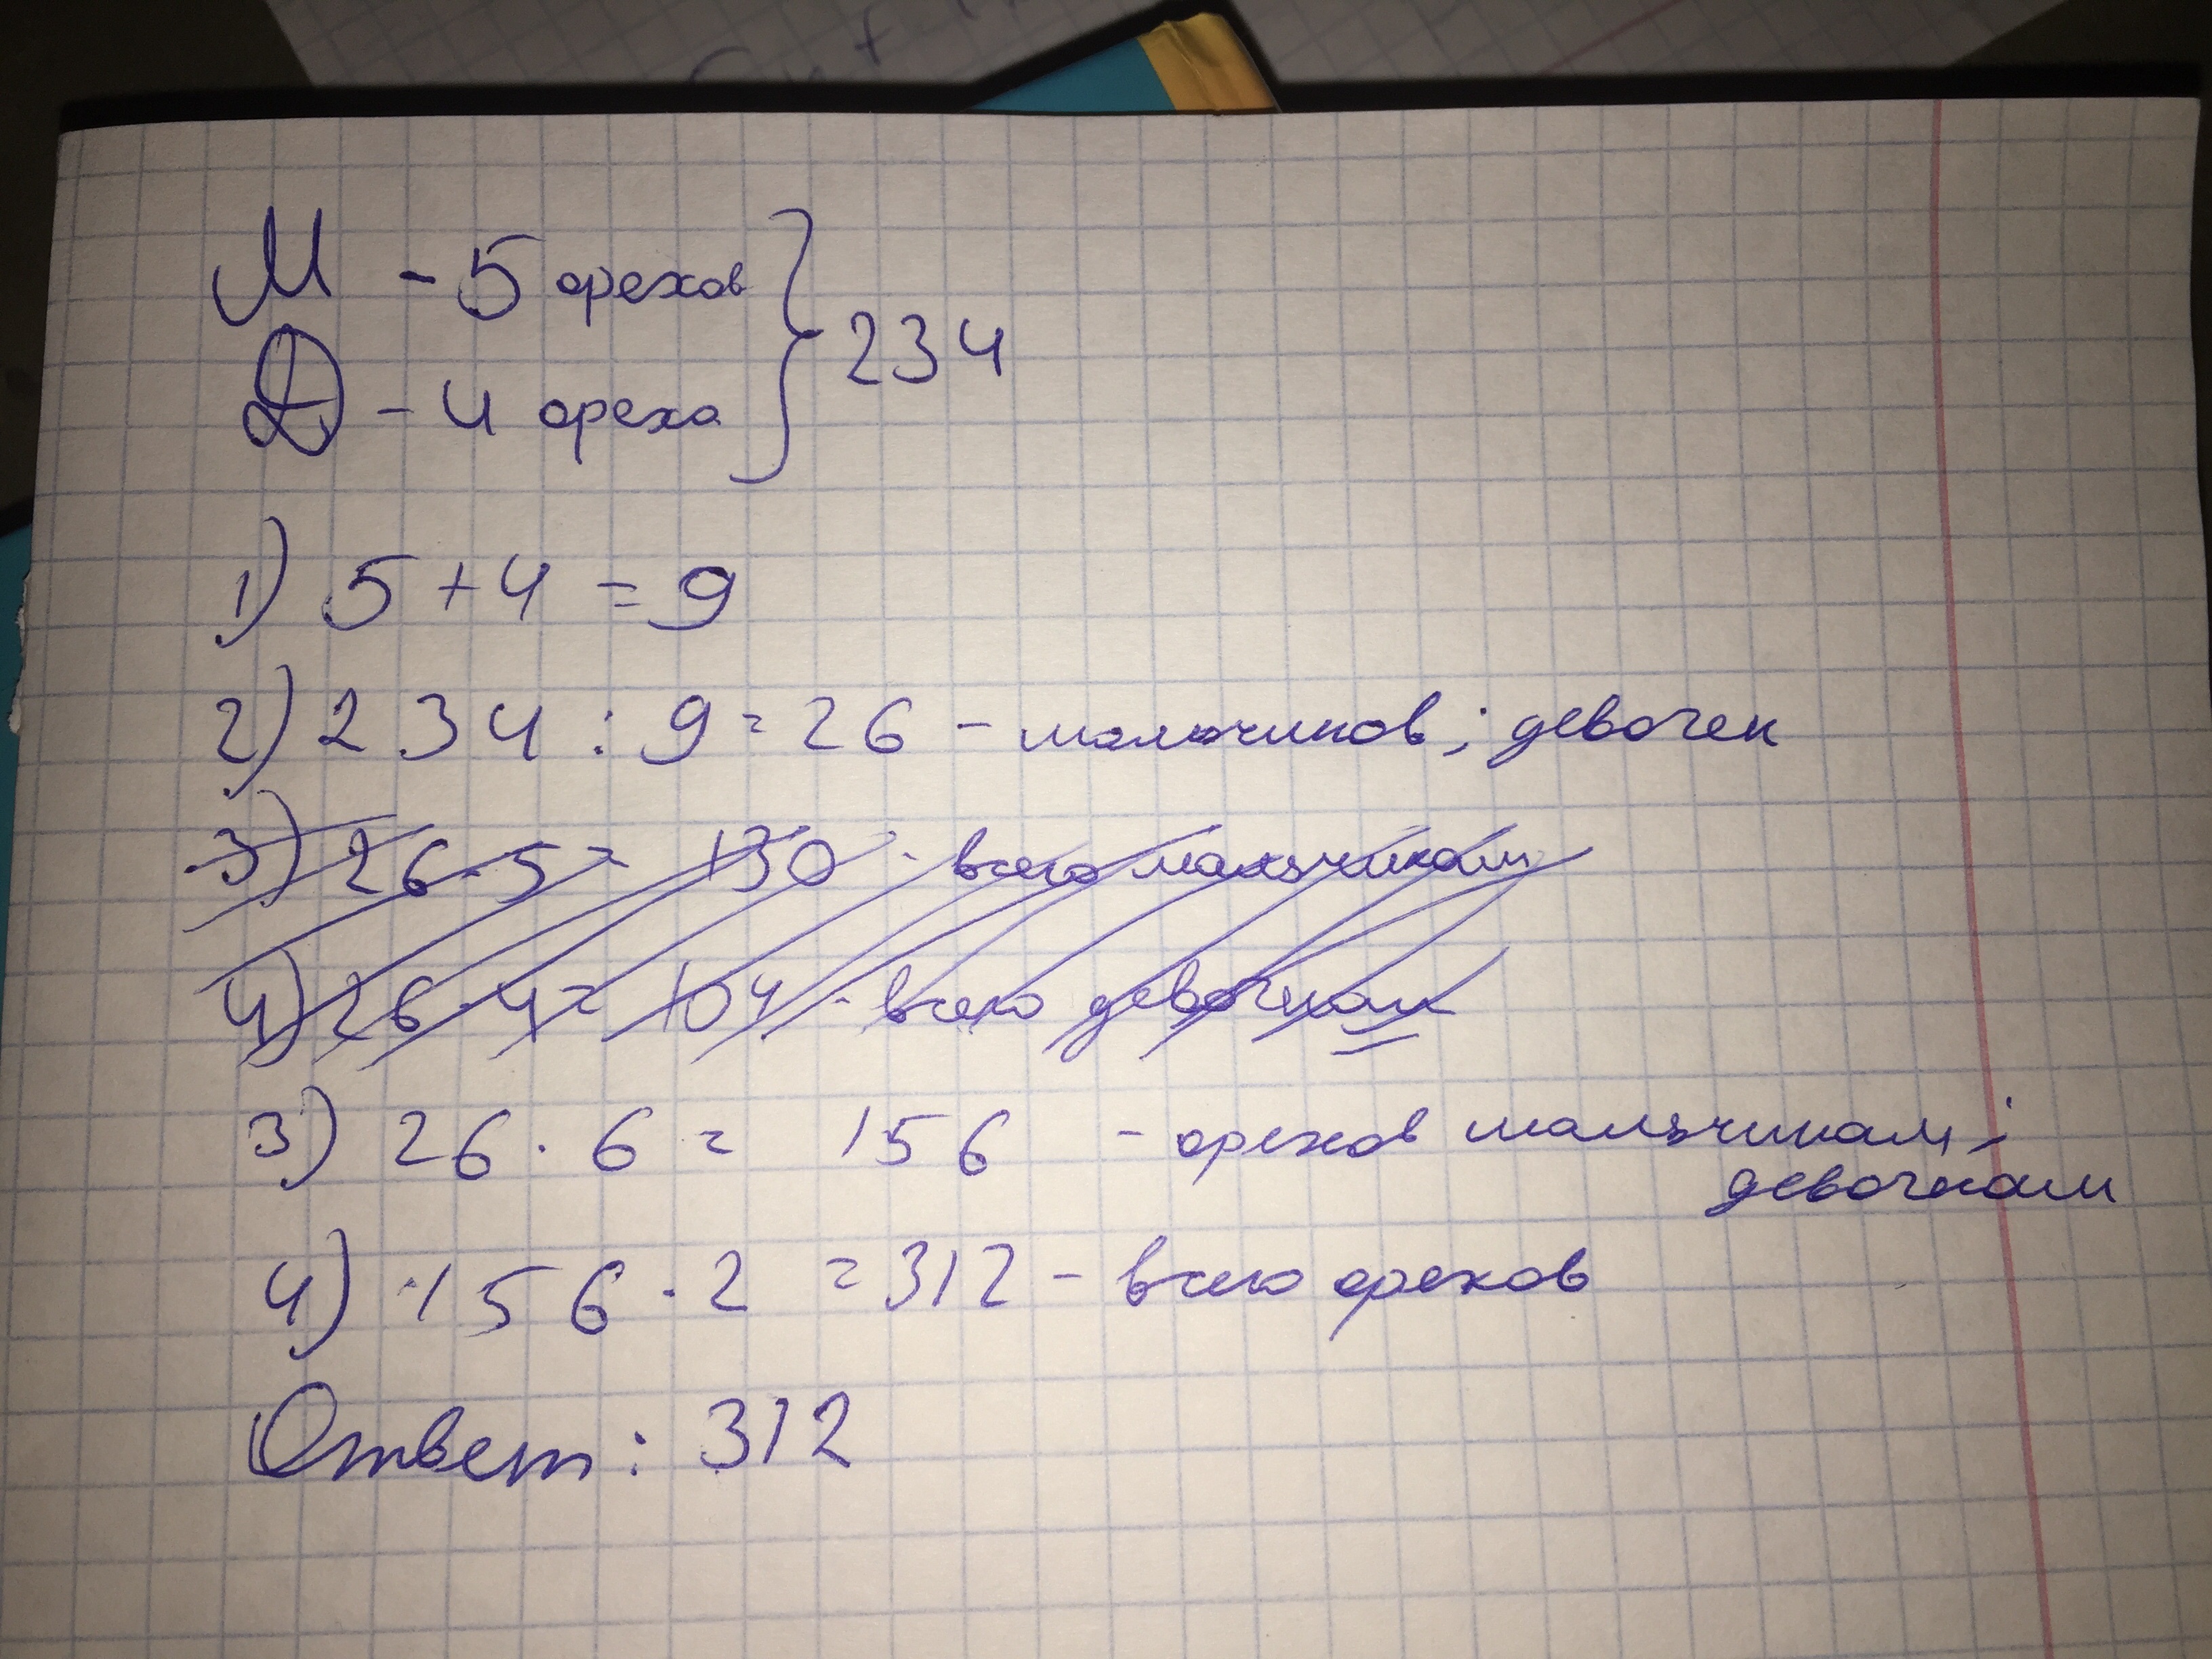 М - 5 орехов
Д - 4 ореха
} 234
1) 5 + 4 = 9
2) 234 : 9 = 26 - мальчиков; девочек
3) 26 · 5 = 130 - всего мальчикам
4) 26 · 4 = 104 - всего девочкам
3) 26 · 6 = 156 - орехов мальчикам;
девочкам
4) 156 · 2 = 312 - всего орехов
Ответ: 312